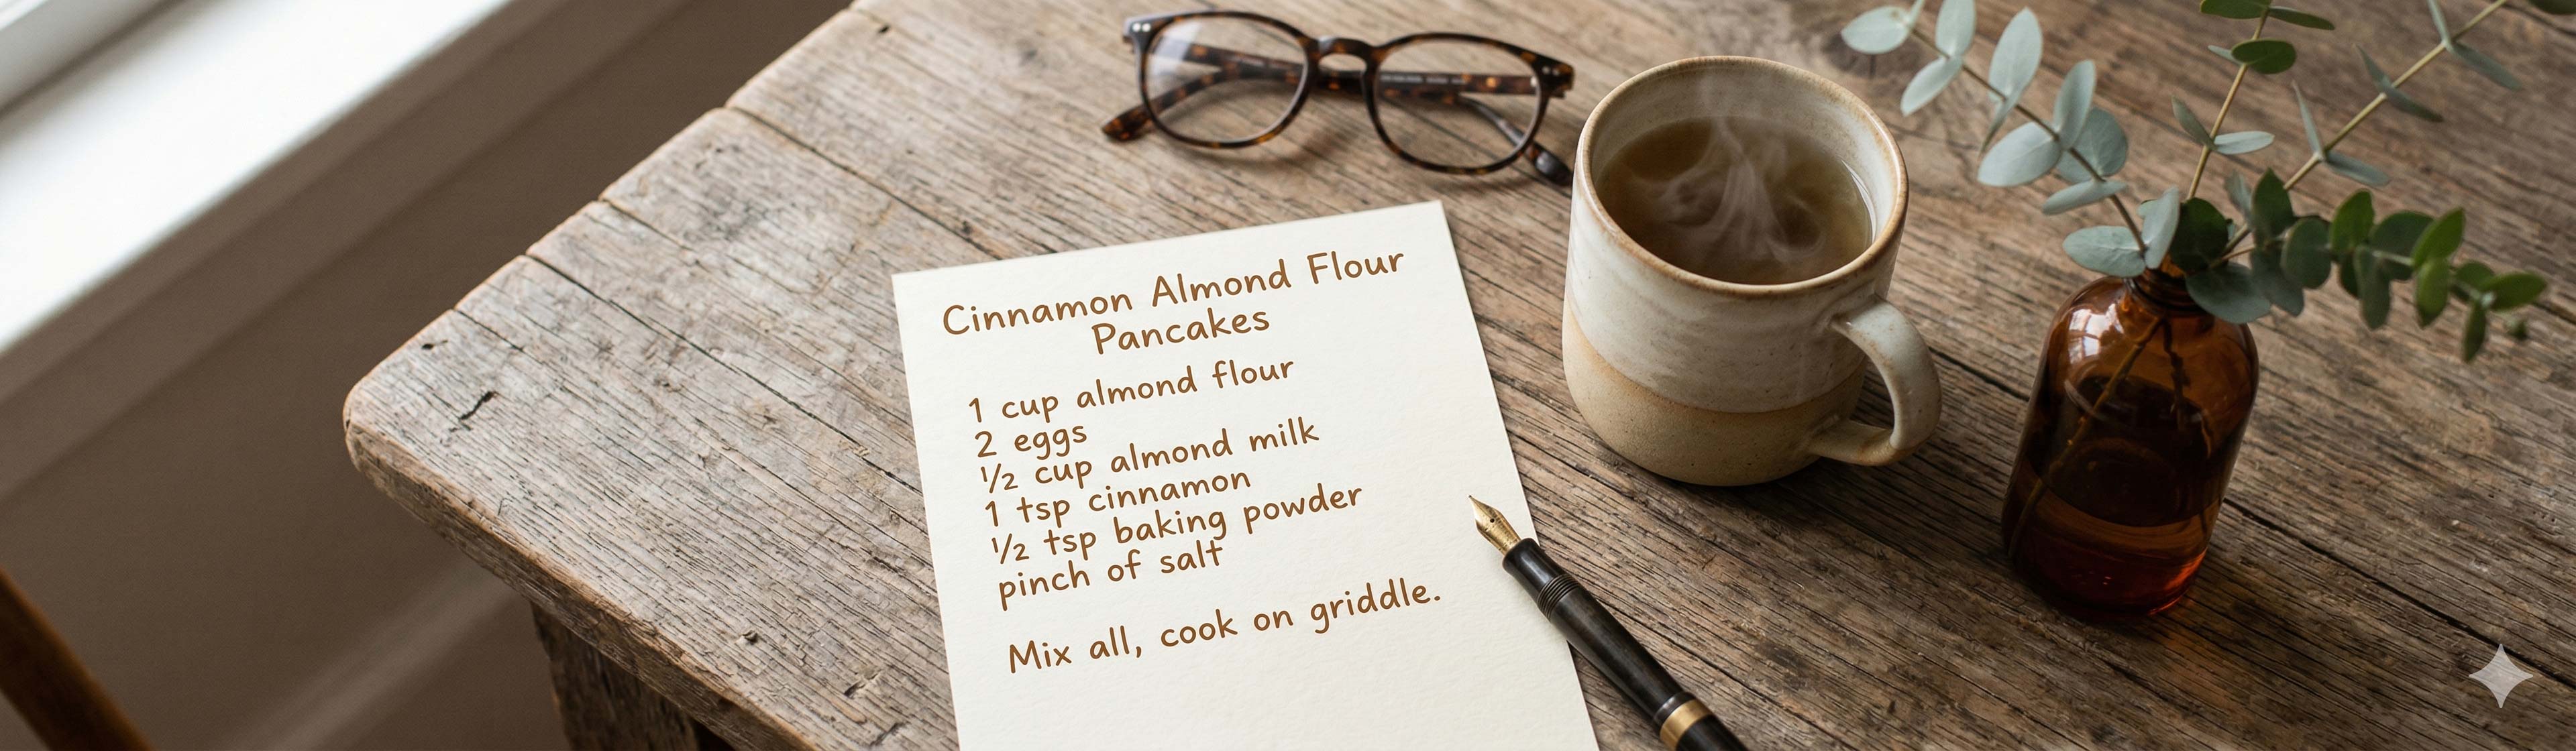 Cinnamon Almond Flour
Pancakes
1 cup almond flour
2 eggs
½ cup almond milk
1 tsp cinnamon
½ tsp baking powder
pinch of salt
Mix all, cook on griddle.